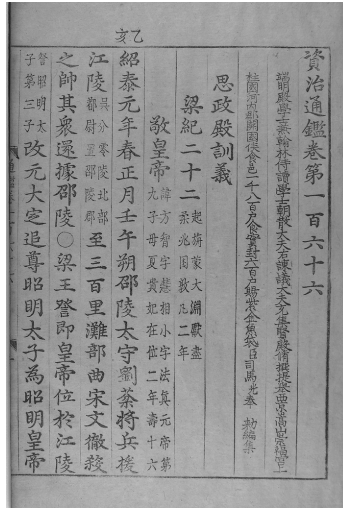 亥乙
資治通鑑卷第一百六十六
端明殿學士兼翰林侍讀學士朝散大夫右諫議大夫充集賢殿脩撰提擧西京嵩山崇福宮上
柱國河內郡開國侯食邑一千八百戶食實封六百戶賜紫金魚袋臣司馬光奉 勑編集
思政殿訓義
梁紀二十二 起旃蒙大淵獻盡
柔兆困敦凡二年
敬皇帝 諱方智字慧相小字法眞元帝第
九子母夏貴妃在位二年壽十六
紹泰元年春正月壬午朔邵陵太守劉棻將兵援
江陵 吳分零陵北部
都尉置邵陵郡 至三百里灘部曲宋文徹殺
之帥其衆還據邵陵○梁王詧即皇帝位於江陵
詧昭明太
子第三子 改元大定追尊昭明太子為昭明皇帝